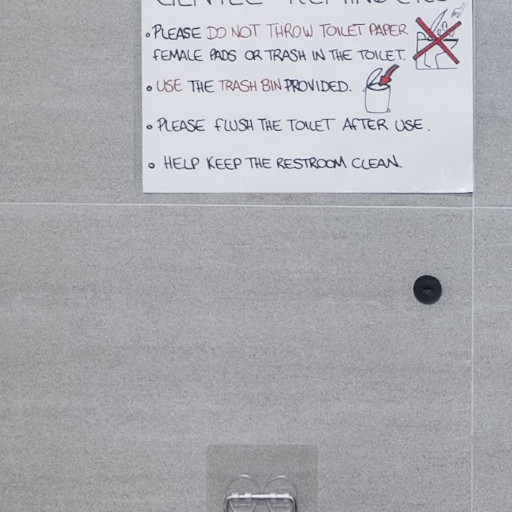 • PLEASE DO NOT THROW TOILET PAPER
FEMALE PADS OR TRASH IN THE TOILET.
• USE THE TRASH BIN PROVIDED.
• PLEASE FLUSH THE TOILET AFTER USE.
• HELP KEEP THE RESTROOM CLEAN.